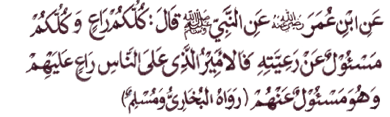 عَنِ ابْنِ عُمَرَ ﷺ عَنِ النَّبِيِّ ﷺ قَالَ: كُلُّكُمْ رَاعٍ وَكُلُّكُمْ
مَسْئُوْلٌ عَنْ رَعِيَّتِهِ فَالْاَمِيْرُ الَّذِىْ عَلَى النَّاسِ رَاعٍ عَلَيْهِمْ
وَهُوَ مَسْئُوْلٌ عَنْهُمْ (رَوَاهُ الْبُخَارِىُّ وَمُسْلِمٌ)